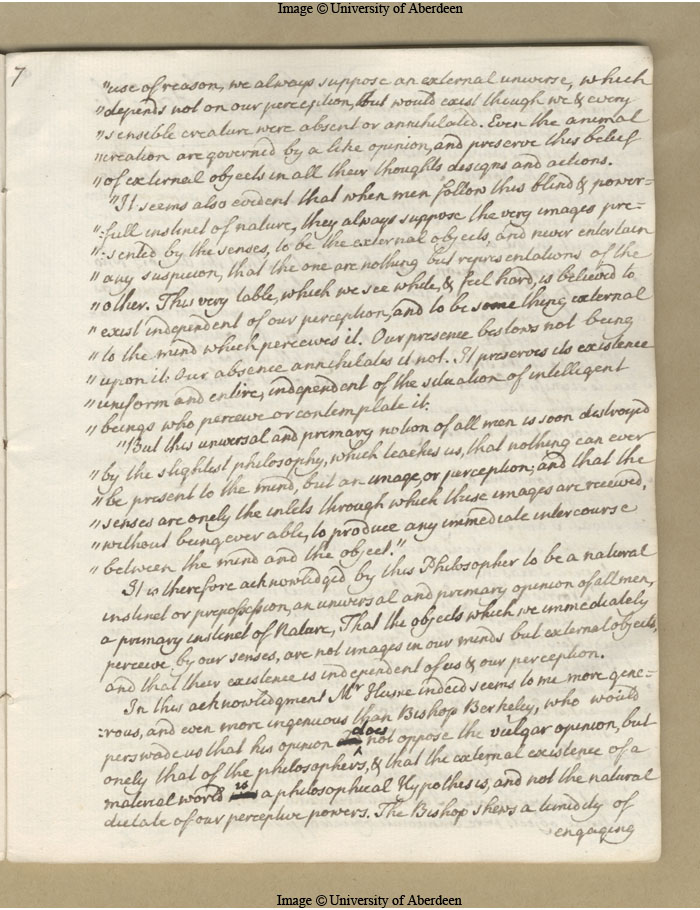 Image © University of Aberdeen
7
"use of reason, we always suppose an external universe, which
"depends not on our perception, but would exist though we & every
"sensible creature were absent or annihilated. Even the animal
"creation are governed by a like opinion, and preserve this belief
"of external objects in all their thoughts designs and actions.
"It seems also evident that when men follow this blind & power=
":full instinct of nature, they always suppose the very images pre=
":sented by the senses, to be the external objects, and never entertain
"any suspicion, that the one are nothing but representations of the
"other. This very table, which we see white, & feel hard, is believed to
"exist independent of our perception, and to be some thing external
"to the mind which perceives it. Our presence bestows not being
"upon it. Our absence annihilates it not. It preserves its existence
"uniform and entire, independent of the situation of intelligent
"beings who perceive or contemplate it.
"But this universal and primary notion of all men is soon destroyed
"by the slightest philosophy, which teaches us, that nothing can ever
"be present to the mind, but an image, or perception, and that the
"senses are onely the inlets through which these images are received,
"without being ever able, to produce any immediate intercourse
"between the mind and the object."
It is therefore acknowledged by this Philosopher to be a natural
instinct or prepossession, an universal and primary opinion of all men,
a primary instinct of Nature, That the objects which we immediately
perceive by our senses, are not images in our minds but external objects,
and that their existence is independent of us & our perception.
In this acknowledgment Mr Hume indeed seems to me more gene=
:rous, and even more ingenuous than Bishop Berkeley, who would
perswade us that his opinion does not oppose the vulgar opinion, but
onely that of the philosophers, & that the external existence of a
material world is a philosophical Hypothesis, and not the natural
dictate of our perceptive powers. The Bishop shews a timidity of
engaging
Image © University of Aberdeen